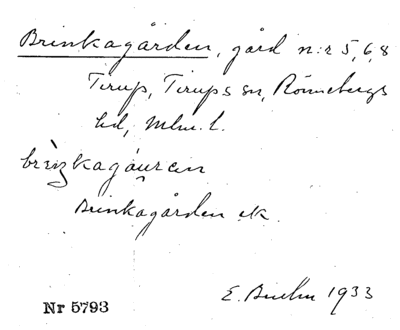 Brinkagården, gård n:r 5, 6, 8
Tirup, Tirups sn, Rönnebergs
hd, Mlm. l.
Brinkagården ek.
E. 1933
Nr 5793